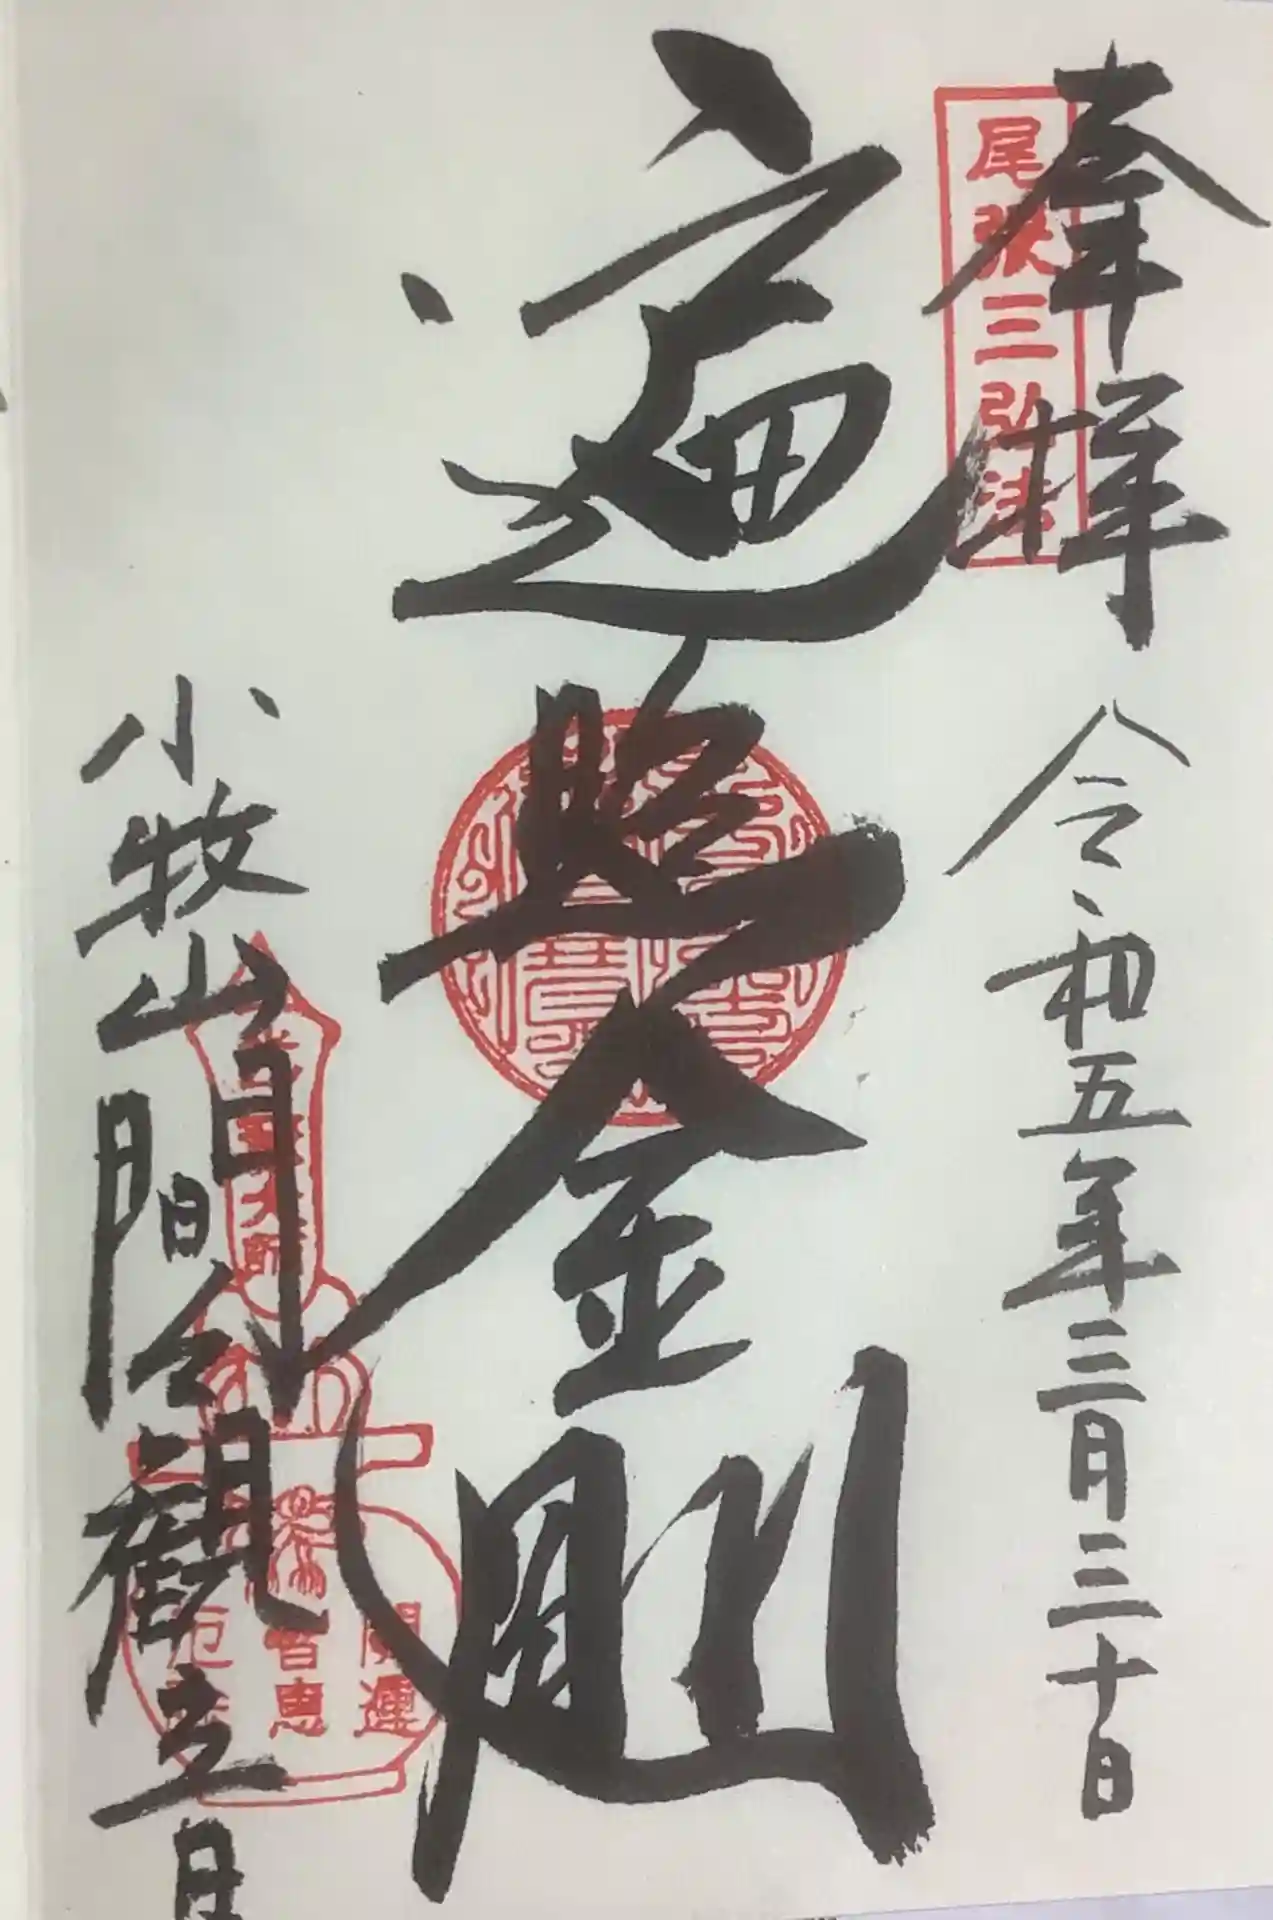 奉拝 令和五年三月三十日
尾張三弘法
遍照金剛
小牧山間々観音
大師
開運
智恵
厄